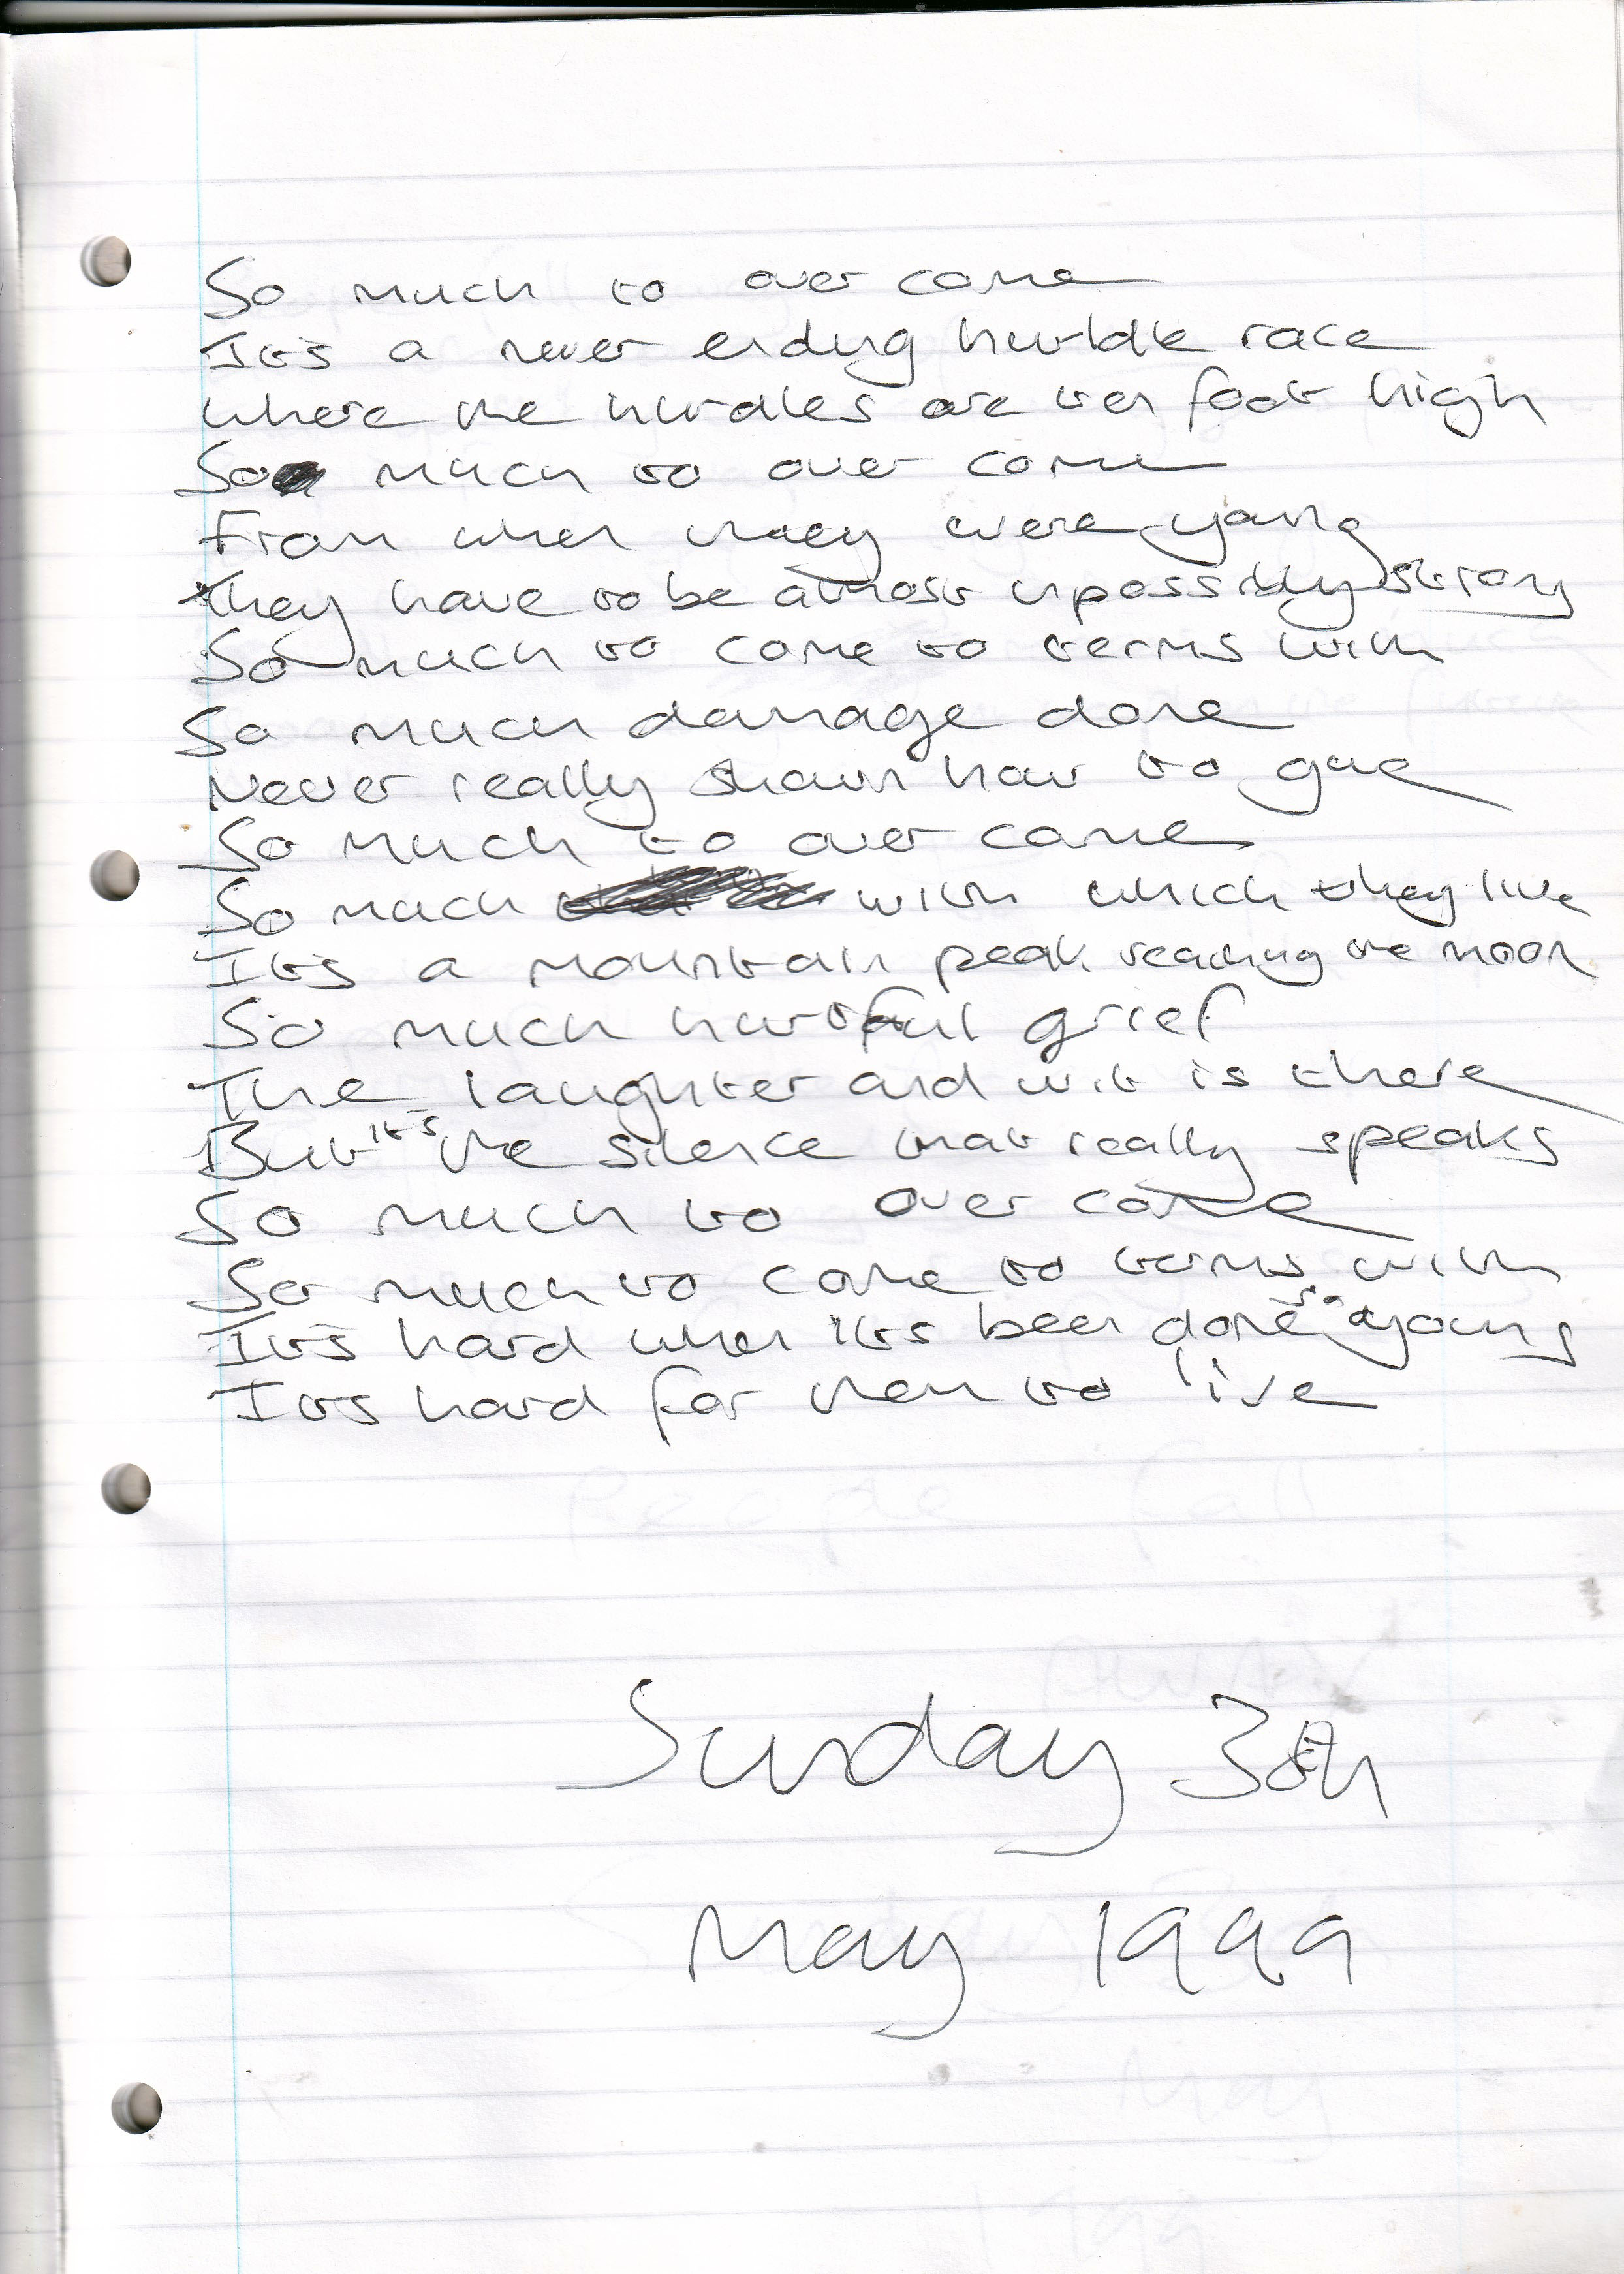 So much to over come
It's a never ending hurdle race
where the hurdles are ten foot high
So much to over come
From when they were young
they have to be almost impossibly strong
So much to come to terms with
So much damage done
Never really shown how to give
So much to over come
So much with which they live
It's a mountain peak reaching the moon
So much hurtful grief
The laughter and wit is there
But it's the silence that really speaks
So much to over come
So much to come to terms with
It's hard when it's been done so young
It's hard for them to live
Sunday 30th
May 1999